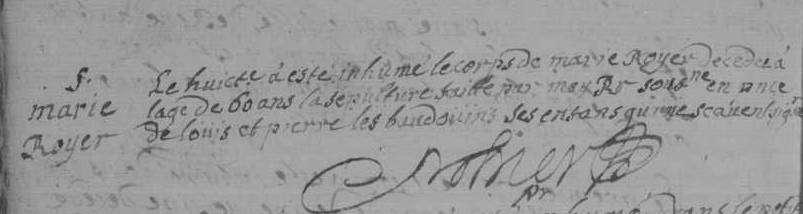 S.
marie
Royer
Le huicte à este inhumé le corps de marie Royer decedeé à
lage de 60 ans la sepulture faitte par moy Pr sousne en
de louis et pierre les baudouins ses enfans qui ne scavent signr
Pr